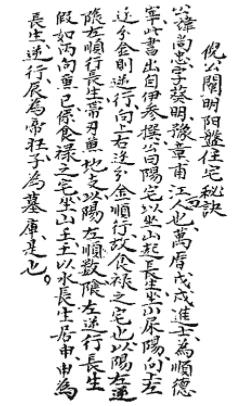 倪公闡明陽盤住宅秘訣
公諱尚忠字葵明豫章甫江人也萬曆戊戌進士為順德
宰此書出自伊参撰公曰陽宅以坐山起長生坐小尿陽向上左
逆分金則逆行向上右逆分金順行故食祿之宅也以陽左逆
陰左順行長生帶刃煞地支以陽左順數陰左逆行長生
假如丙向煞巳係食祿之宅坐山壬土以水長生居申申為
長生逆行辰為帝旺子為墓庫是也。